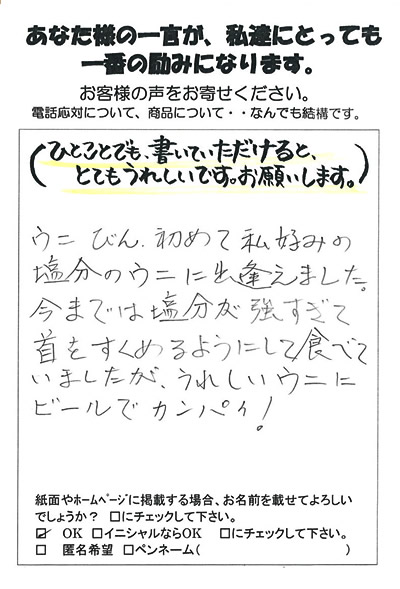 あなた様の一言が、私達にとっても
一番の励みになります。
お客様の声をお寄せください。
電話応対について、商品について・・なんでも結構です。
(ひとことでも、書いていただけると、
とてもうれしいです。お願いします。)
ウニ びん、初めて私好みの
塩分のウニに出逢えました。
今までは塩分が強すぎて
首をすくめるようにして食べて
いましたが、うれしいウニに
ビールでカンパイ!
紙面やホームページに掲載する場合、お名前を載せてよろしい
でしょうか? □にチェックして下さい。
☑ OK □イニシャルならOK □にチェックして下さい。
□ 匿名希望 □ペンネーム( )